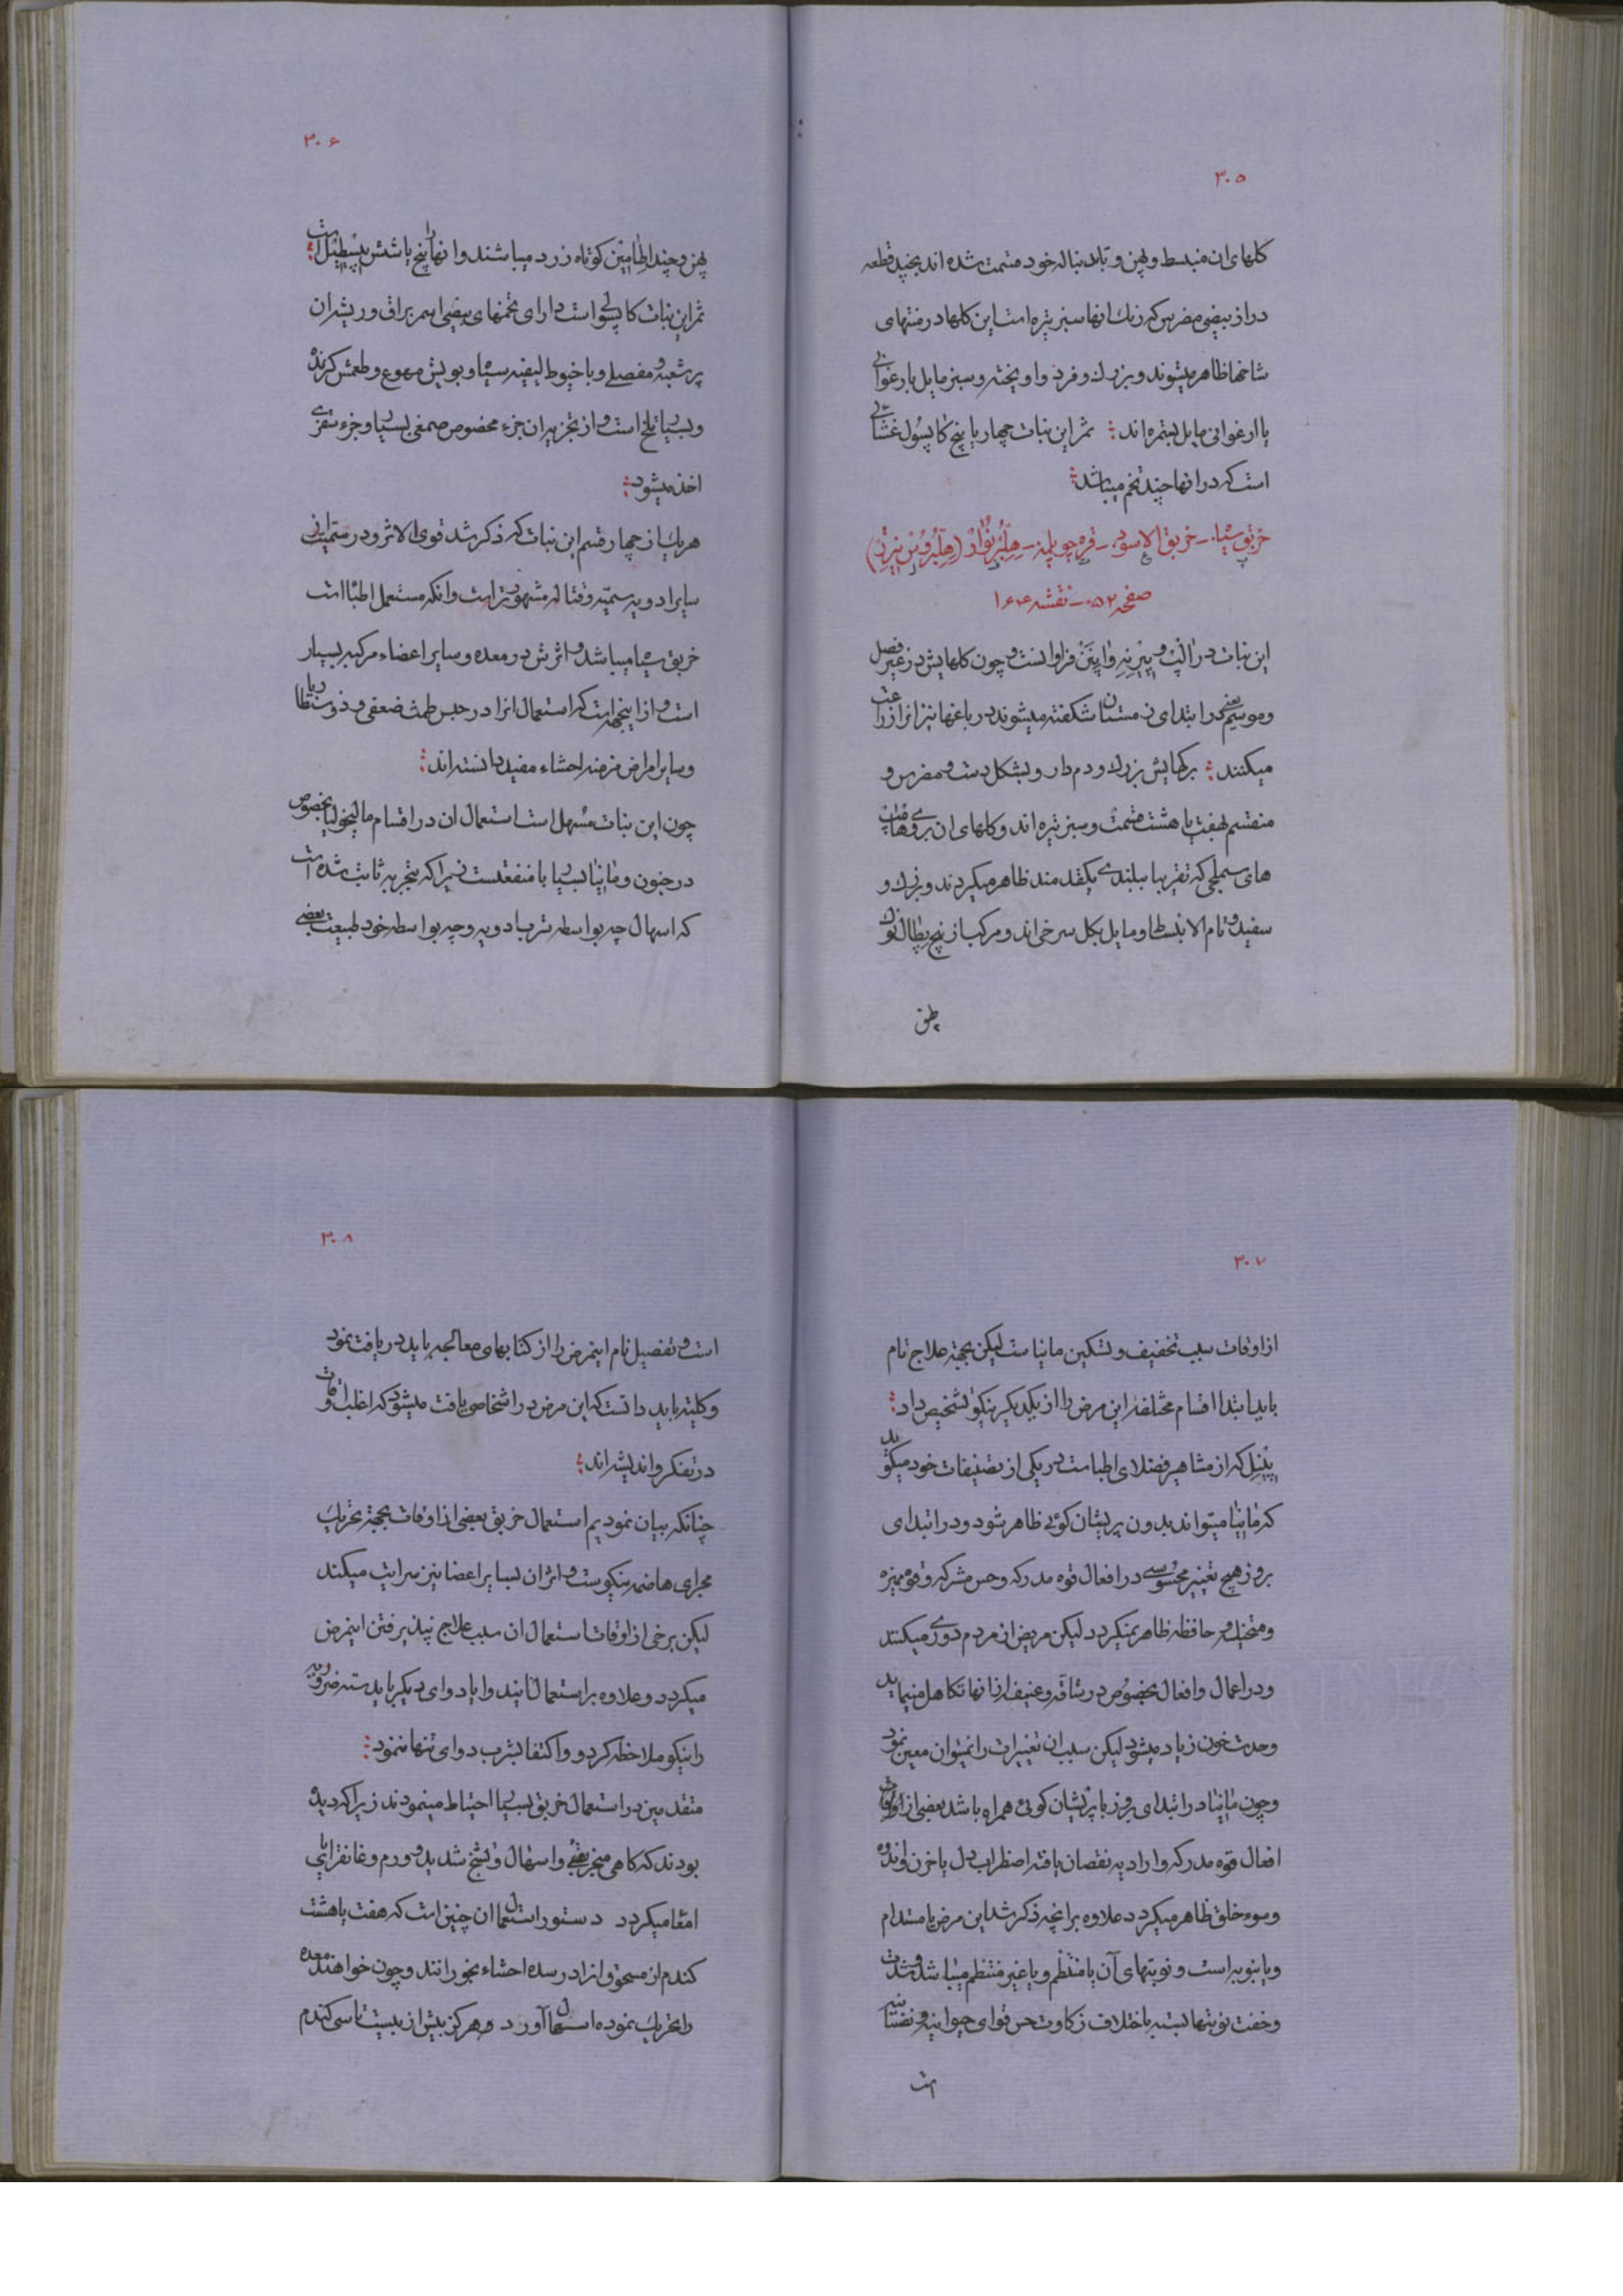 ۳۰۵
کلهای ان منبسط و پهن و تا بدنباله خود منتمت شده اند بچند قطعه
دراز بیضی مضرس که رنك انها سبز تیره است این کلها در منتهای
شاخها ظاهر میشوند و بزرك و فرد و اویخته و سبز مایل بارغوانی
یا ارغوانی مایل بتیره اند : ثمر این نبات چهار یا پنج کاپسول غشائی
است که در انها چند تخم میباشد :
خربق سیاه - خربق الاسود - قره چوپلمه - هلبر نوار (هلبروس نیژر)
صفحه ۵۲ - نقشه ۱۶۴
این نبات در الپ و پیرنه و اپنن فراوانست و چون کلهایش در غیر فصل
و موسم یعنی در ابتدای زمستان شکفته میشوند در باغها نیز انرا زراعت
میکنند : برکهایش بزرك و دم دار و بشکل دست و مضرس و
منقسم بهفت یا هشت قسمت و سبز تیره اند و کلهای ان بروی ساقه
های سطحی که تقریبا ببلندی یکقدمند ظاهر میکردند و بزرك و
سفید و تام الانبساط و مایل بکل سرخی اند و مرکب از پنج پطال نوك
پهن
۳۰۶
پهن و چند اطامین کوتاه زرد میباشند و انها را پنج یا شش پیسطیل است :
ثمر این نبات کاپسولی است دارای تخمهای بیضی اسمر براق و ریشه ان
پر شعبه و مفصلی و با خیوط لیفیه سیاه و بویش مهوع و طعمش کزنده
و بسیار تلخ است و از تجزیه ان جزء مخصوص صمغی بسیار و جزء سقزی
اخذ میشود :
هریك از چهار قسم این نبات که ذکر شد قوی الاثر و در سمیت از
سایر ادویه سمیه و قتاله مشهورتر است و انکه مستعمل اطبا است
خربق سیاه میباشد و اثرش در معده و سایر اعضاء مرکبه بسیار
است و از اینجهة است که استعمال انرا در حبس طمث ضعفی و ذوسنطاریا
و سایر امراض مزمنه احشاء مفید دانسته اند :
چون این نبات مسهل است استعمال ان در اقسام مالیخولیا بخصوص
در جنون و مانیا بسیار با منفعتست زیرا که بتجربه ثابت شده است
که اسهال چه بواسطه شرب ادویه و چه بواسطه خود طبیعت بعضی
۳۰۷
از اوقات سبب تخفیف و تسکین مانیاست لیکن بجهة علاج تام
باید ابتدا اقسام مختلفه این مرض را از یکدیکر نیکو تشخیص داد :
پینل که از مشاهیر فضلای اطباست در یکی از تصنیفات خود میکوید
که مانیا میتواند بدون پریشان کوئی ظاهر شود و در ابتدای
بروز هیچ تغییر محسوسی در افعال قوه مدرکه و حس مشترکه و قوه ممیزه
و متخیله و حافظه ظاهر نمیکردد لیکن مریض از مردم دوری میکند
و در اعمال و افعال بخصوص در شاقه و عنیف از انها تکاهل مینماید
وحدت خون زیاد میشود لیکن سبب ان تغییرات را نمیتوان معین نمود
و چون مانیا در ابتدای بروز با پریشان کوئی همراه باشد بعضی از اوقات
افعال قوه مدرکه و ارادیه نقصان یافته اضطراب دل یا حزن و اندوه
و سوء خلق ظاهر میکردد علاوه بر انچه ذکر شد این مرض یا مستدام
و یا بنوبه است و نوبتهای آن یا منتظم و یا غیر منتظم میباشد و شدت
و خفت نوبتها بسته باختلاف زکاوت حس قوای حیوانیه و نفسانیه
است
۳۰۸
است و تفصیل تام اینمرض را از کتابهای معالجه باید دریافت نمود
و کلیته باید دانست که این مرض در اشخاصی یافت میشود که اغلب اوقات
در تفکر و اندیشه اند :
چنانکه بیان نمودیم استعمال خربق بعضی از اوقات بجهة تحریك
مجرای هاضمه نیکوست و اثر ان بسایر اعضا نیز سرایت میکند
لیکن برخی از اوقات استعمال ان سبب علاج نپذیرفتن اینمرض
میکردد و علاوه بر استعمال ایندوا یا دوای دیکر باید سته ضروریه
را نیکو ملاحظه کرد و اکتفا بشرب دوای تنها ننمود :
متقدمین در استعمال خربق بسیار احتیاط مینمودند زیرا که دیده
بودند که کاهی منجر بقئ و اسهال و تشنج شدید و ورم و غانقرایای
امعا میکردد دستور استعمال ان چنین است که هفت یا هشت
کندم از مسحوق انرا در سده احشاء بخورانند و چون خواهند معده
را تحریك نموده اسهال آورد و هرکز بیش از بیست تا سی کندم